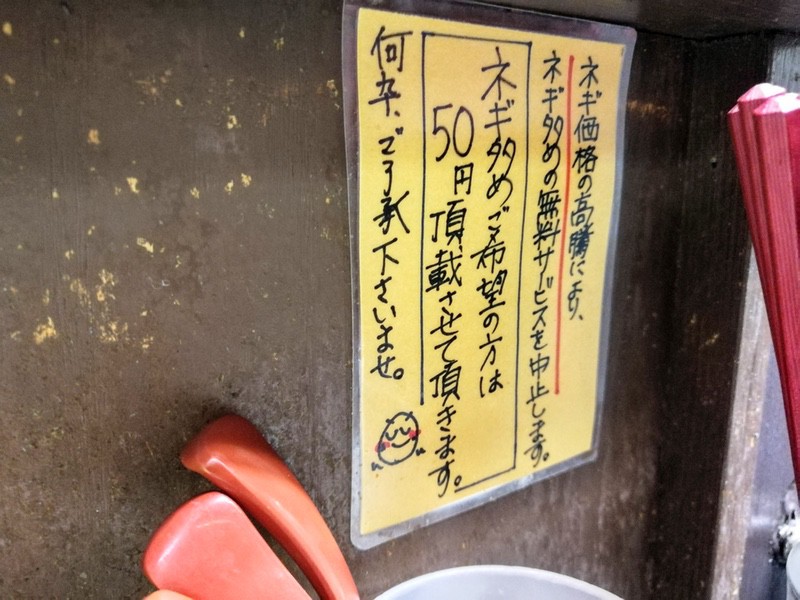 ネギ価格の高騰により、
ネギ多めの無料サービスを中止します。
ネギ多めご希望の方は
50円頂載させて頂きます。
何卒、ご了承下さいませ。